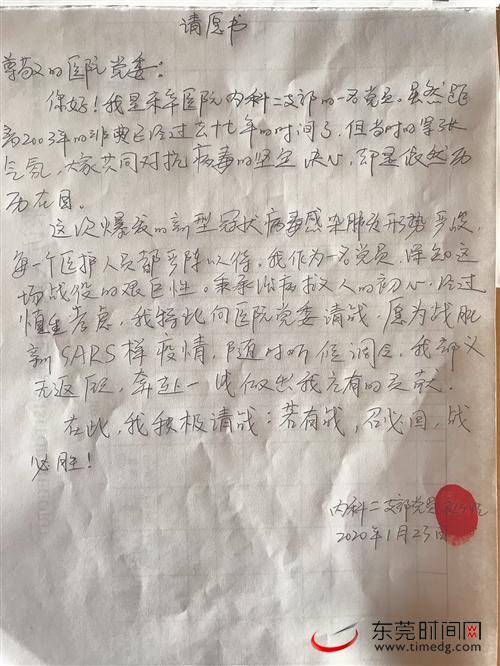 请愿书
尊敬的医院党委：
你好！我是东华医院内科二支部的一名党员。虽然距
离2003年的非典已经过去十七年的时间了，但当时的紧张
气氛，大家共同对抗病毒的坚定决心，却是依然历
历在目。
这次爆发的新型冠状病毒感染肺炎形势严峻，
每一个医护人员都严阵以待。我作为一名党员，深知这
场战役的艰巨性。秉承治病救人的初心，经过
慎重考虑，我特此向医院党委请战，愿为战胜
新SARS样疫情，随时听候调令，我部义
无返顾，奔赴一线做出我应有的贡献。
在此，我积极请战：若有战，召必回，战
必胜！
内科二支部党员
2020年1月25日
东莞时间网
www.timedg.com